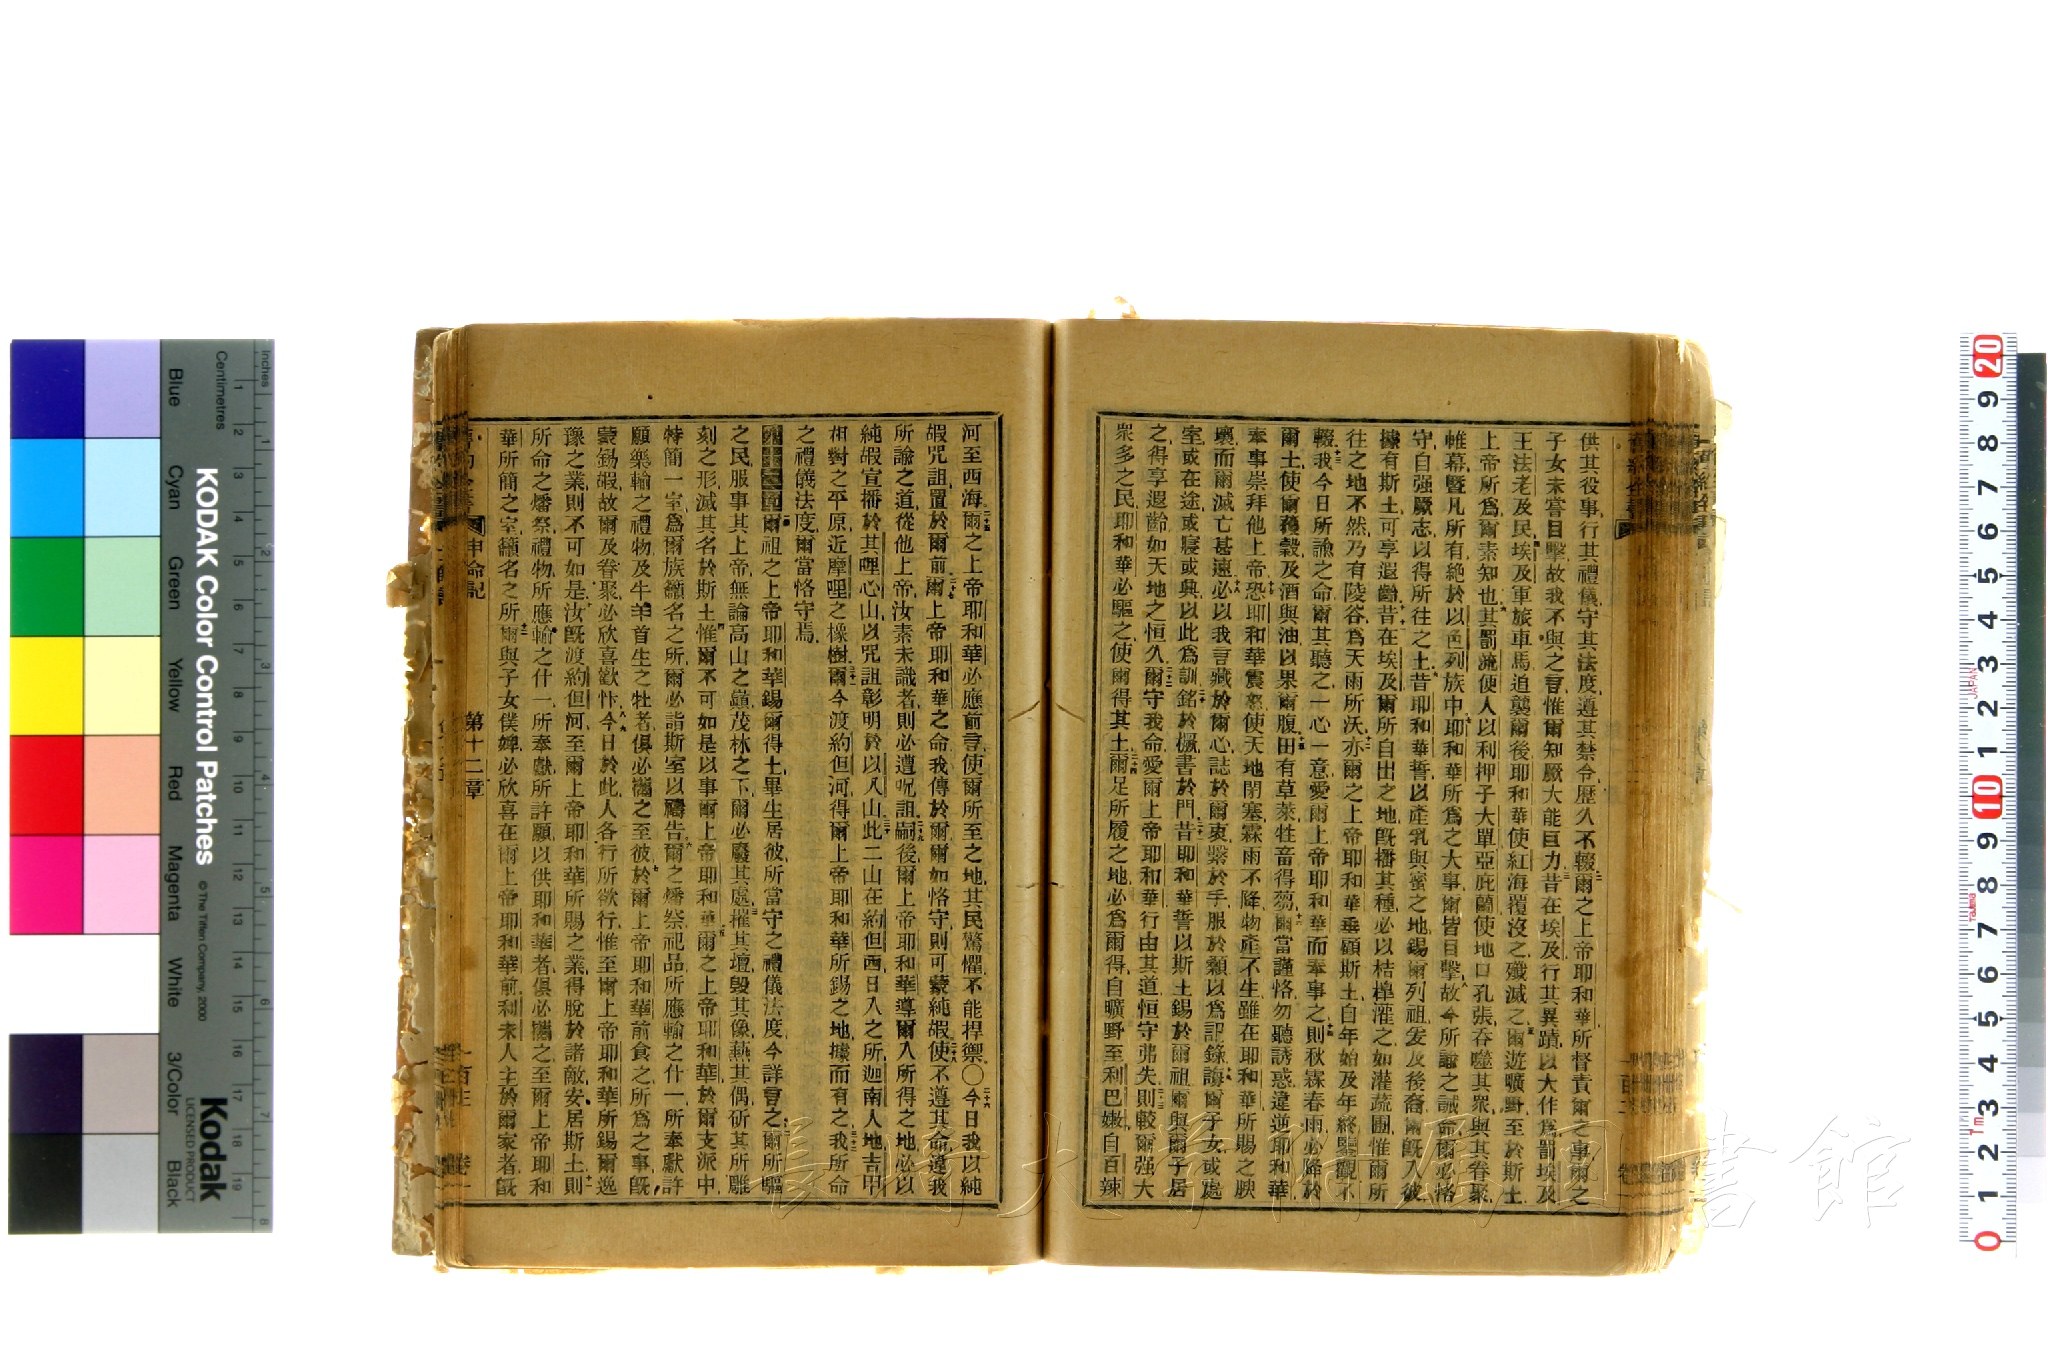 供其役事行其禮儀守其法度遵其禁令歷久不輟爾之上帝耶和華所督責爾之事爾之
子女未嘗目擊故我不與之言惟爾知厥大能巨力昔在埃及行其異蹟以大作爲罰埃及
王法老及民埃及軍旅車馬追襲爾後耶和華使紅海覆沒之殲滅之爾遊曠野至於斯土
上帝所爲爾素知也其罰流便人以利押子大單亞庇蘭使地口孔張吞噬其眾與其眷聚
帷幕暨凡所有絕於以色列族中耶和華所爲之大事爾皆目擊故今所諭之誡命爾必恪
守自强厥志以得所往之土昔耶和華誓以產乳與蜜之地錫爾列祖爰及後裔爾旣入彼
據有斯土可享遐齡昔在埃及爾所自出之地旣播其種必以桔槹灌之如灌蔬園惟爾所
往之地不然乃有陵谷爲天雨所沃亦爾之上帝耶和華垂顧斯土自年始及年終鑒觀不
輟我今日所諭之命爾其聽之一心一意愛爾上帝耶和華而奉事之則秋霖春雨必降於
爾土使爾穫穀及酒與油以果爾腹田有草萊牲畜得芻爾當謹恪勿聽誘惑違逆耶和華
奉事崇拜他上帝恐耶和華震怒使天地閉塞霖雨不降物產不生雖在耶和華所賜之腴
壤而爾滅亡甚速必以我言藏於爾心誌於爾衷繫於手服於額以爲記錄誨爾子女或處
室或在途或寢或興以此爲訓銘於橛書於門昔耶和華誓以斯土錫於爾祖爾與爾子居
之得享遐齡如天地之恒久爾守我命愛爾上帝耶和華行由其道恒守弗失則較爾强大
眾多之民耶和華必驅之使爾得其土爾足所履之地必爲爾得自曠野至利巴嫩自百辣
河至西海爾之上帝耶和華必應前言使爾所至之地其民驚懼不能捍禦〇今日我以純
嘏咒詛置於爾前爾上帝耶和華之命我傳於爾爾如恪守則可蒙純嘏使不遵其命違我
所諭之道從他上帝汝素未識者則必遭咒詛嗣後爾上帝耶和華導爾入所得之地必以
純嘏宣播於其哩心山以咒詛彰明於以八山此二山在約但西日入之所迦南人地吉甲
相對之平原近摩哩之橡樹爾今渡約但河得爾上帝耶和華所錫之地據而有之我所命
之禮儀法度爾當恪守焉
第十二章爾祖之上帝耶和華錫爾得土畢生居彼所當守之禮儀法度今詳言之爾所驅
之民服事其上帝無論高山之巔茂林之下爾必廢其處摧其壇毀其像爇其偶斫其所雕
刻之形滅其名於斯土惟爾不可如是以事爾上帝耶和華爾之上帝耶和華於爾支派中
特簡一室爲爾族籲名之所爾必詣斯室以禱告爾之燔祭祀品所應輸之什一所奉獻許
願樂輸之禮物及牛羊首生之牡者俱必攜之至彼於爾上帝耶和華前食之所爲之事旣
蒙錫嘏故爾及眷聚必欣喜歡忭今日於此人各行所欲行惟至爾上帝耶和華所錫爾逸
豫之業則不可如是汝旣渡約但河至爾上帝耶和華所賜之業得脫於諸敵安居斯土則
所命之燔祭禮物所應輸之什一所奉獻所許願以供耶和華者俱必攜之至爾上帝耶和
華所簡之室籲名之所爾與子女僕婢必欣喜在爾上帝耶和華前利未人主於爾家者旣
申命記
第十二章
KODAK Color Control Patches
© The Tiffen Company, 2000
Kodak
LICENSED PRODUCT
Inches
Centimetres
Blue
Cyan
Green
Yellow
Red
Magenta
White
3/Color
Black
長崎大学附属図書館